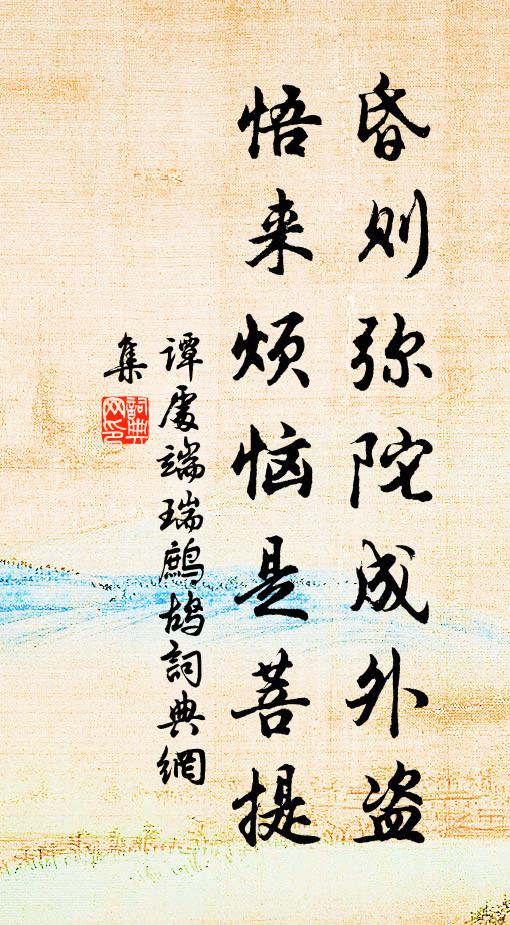 昏则弥陀成外盗
悟来烦恼是菩提
谭处端瑞鹧鸪詞典網
集
詞典网印